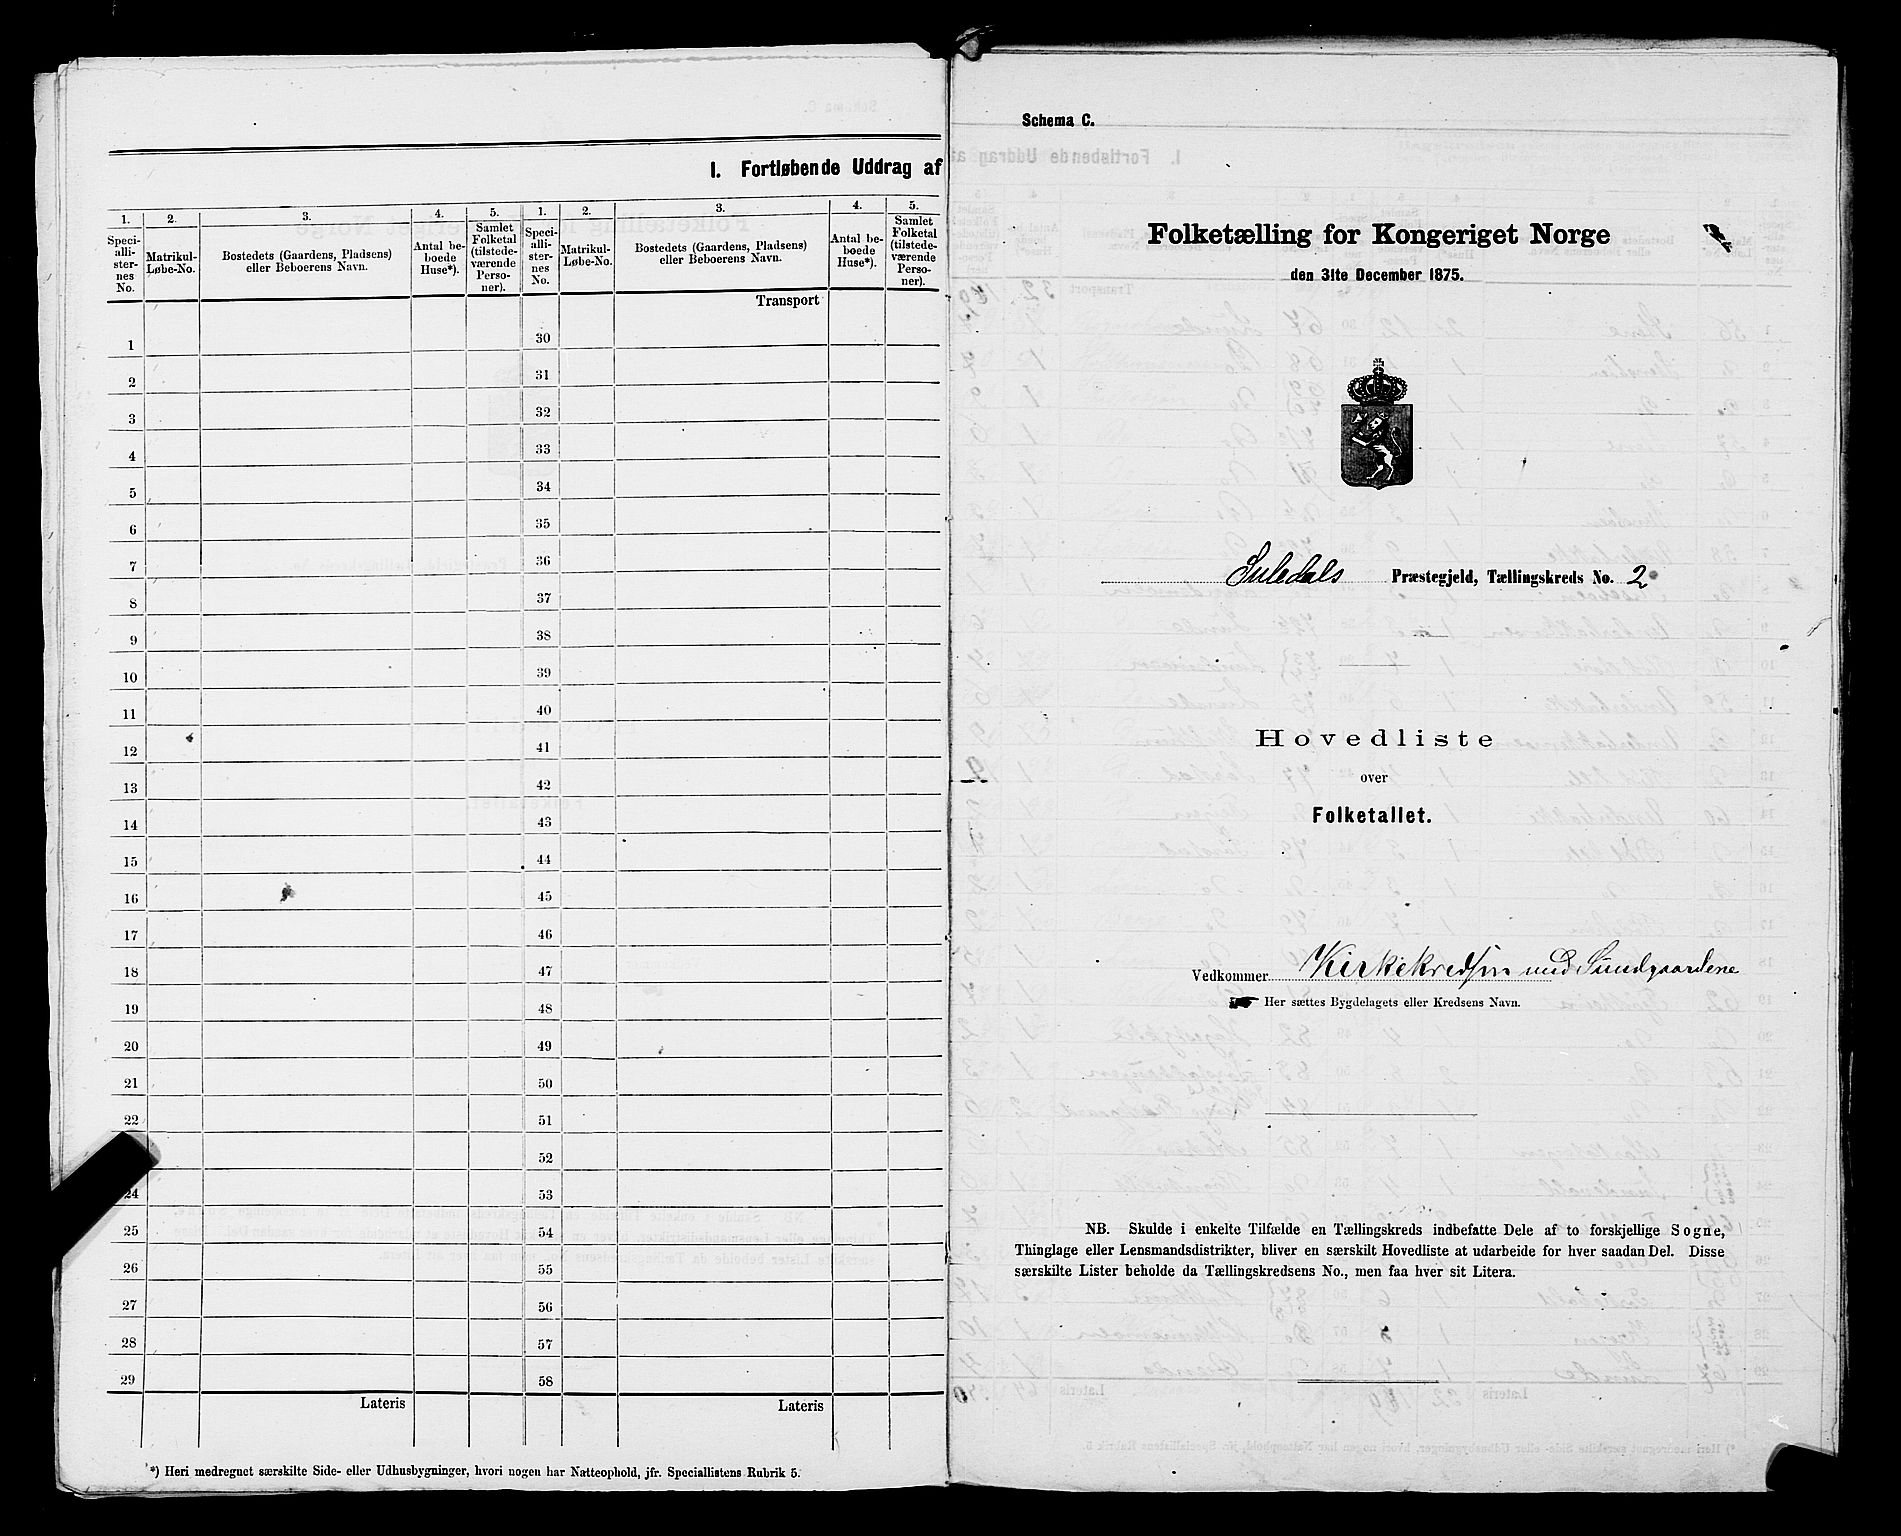 I. Fortløbende Uddrag af
1. 2. 3. 4. 5. 1. 2. 3. 4. 5.
Speciallisternes No. Matrikul-Løbe-No. Bostedets (Gaardens, Pladsens) eller Beboerens Navn. Antal beboede Huse*). Samlet Folketal (tilstedeværende Personer). Speciallisternes No. Matrikul-Løbe-No. Bostedets (Gaardens, Pladsens) eller Beboerens Navn. Antal beboede Huse*). Samlet Folketal (tilstedeværende Personer).
Transport
1 30
2 31
3 32
4 33
5 34
6 35
7 36
8 37
9 38
10 39
11 40
12 41
13 42
14 43
15 44
16 45
17 46
18 47
19 48
20 49
21 50
22 51
52
24 53
25 54
26 55
27 56
28 57
29 58
Lateris Lateris
*) Heri medregnet særskilte Side- eller Udhusbygninger, hvori nogen har Natteophold, jfr. Speciallistens Rubrik 5.
Schema C.
Folketælling for Kongeriget Norge
den 31te December 1875.
Suledals Præstegjeld, Tællingskreds No. 2
Hovedliste
over
Folketallet.
Vedkommer Kirkekredsen med Sundgaardene
Her sættes Bygdelagets eller Kredsens Navn.
NB. Skulde i enkelte Tilfælde en Tællingskreds indbefatte Dele af to forskjellige Sogne,
Thinglage eller Lensmandsdistrikter, bliver en særskilt Hovedliste at udarbeide for hver saadan Del. Disse
særskilte Lister beholde da Tællingskredsens No., men faa hver sit Litera.